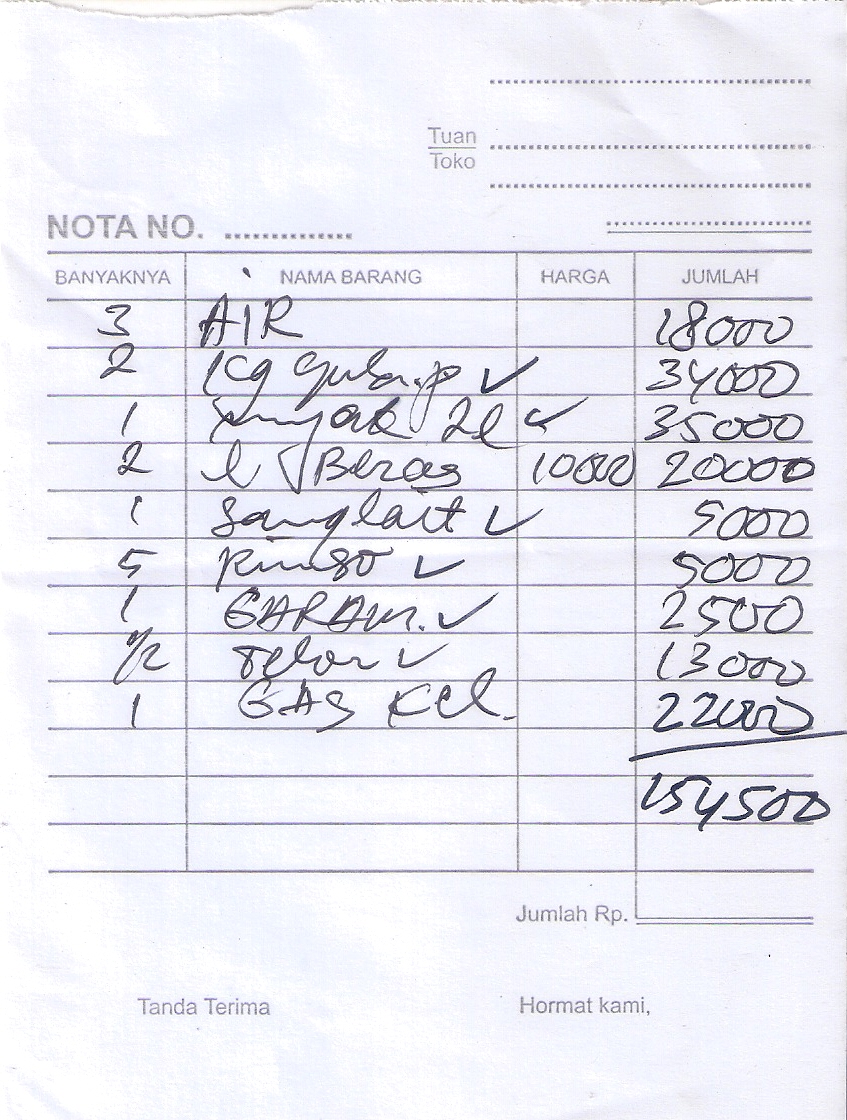 Tuan
Toko
NOTA NO. ..............
BANYAKNYA NAMA BARANG HARGA JUMLAH
3 AIR 18000
2 Kg 34000
1 2l 35000
2 l Beras 10000 20000
1 Sunglait 5000
5 Rinso 5000
1 GARAM. 2500
1/2 Telor 13000
1 GAS KCL. 22000
154500
Jumlah Rp.
Tanda Terima Hormat kami,